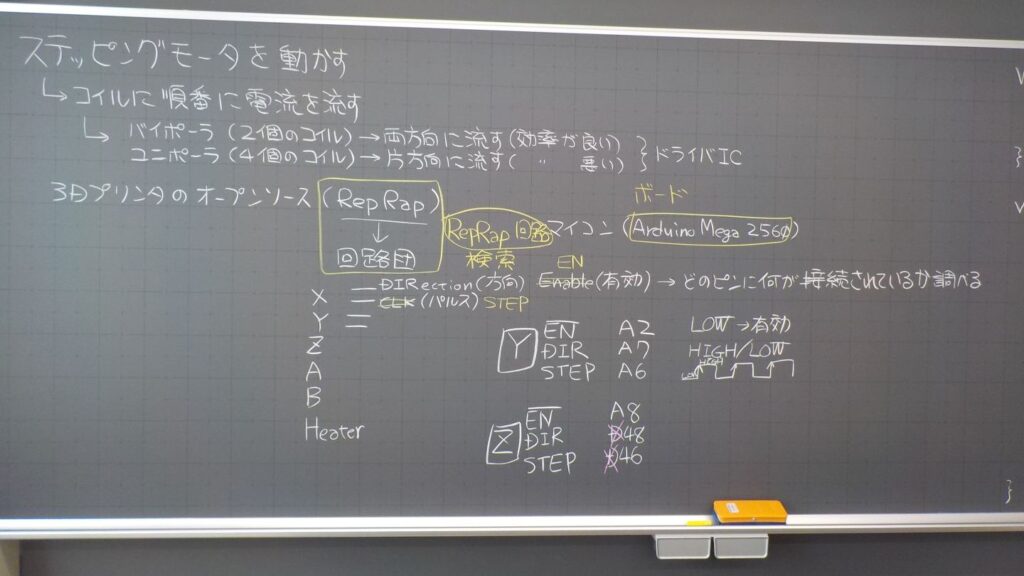 ステッピングモータを動かす
↳コイルに順番に電流を流す
↳バイポーラ(2個のコイル)→両方向に流す(効率が良い)
ユニポーラ(4個のコイル)→片方向に流す( 〃 悪い)
}ドライバIC
ボード
3Dプリンタのオープンソース(RepRap) RepRap回路 マイコン(Arduino Mega 2560)
↓
回路図 検索
EN
DIRection(方向) Enable(有効)→どのピンに何が接続されているか調べる
X CLK(パルス) STEP
Y
Z
A
B
Heater
Y
EN A2 LOW→有効
DIR A7 HIGH/LOW
STEP A6
Z
EN A8
DIR D48
STEP D46